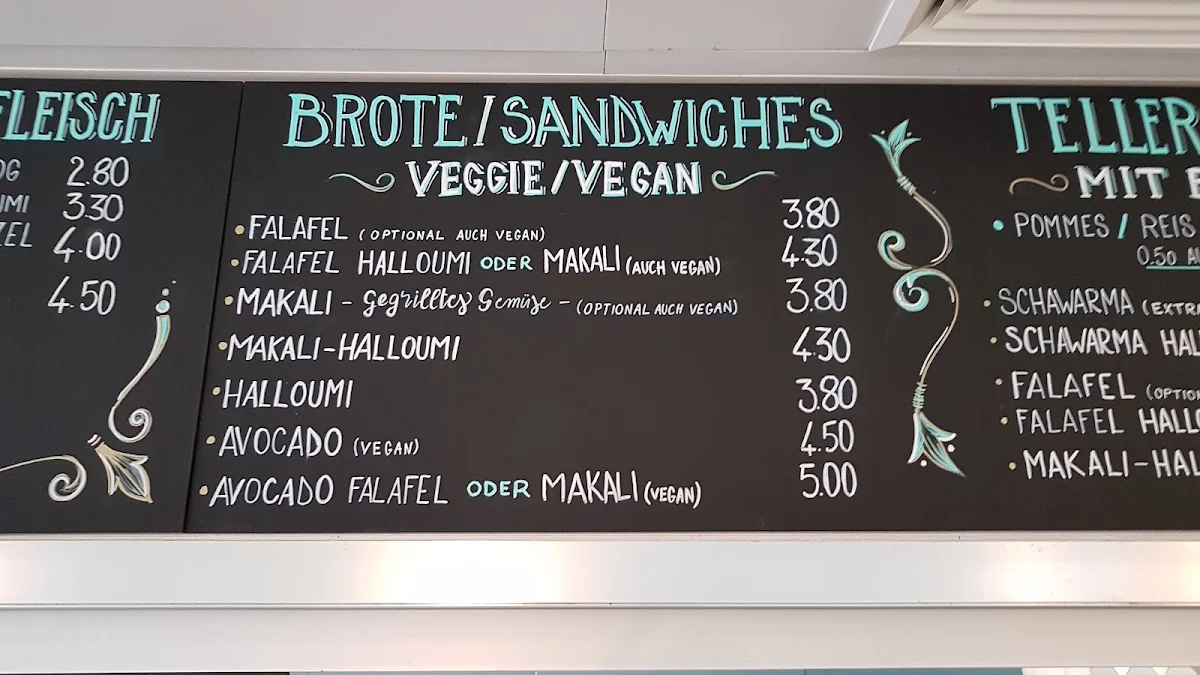 FLEISCH
2.80
3.30
4.00
4.50
BROTE/SANDWICHES
VEGGIE/VEGAN
• FALAFEL (OPTIONAL AUCH VEGAN) 3.80
• FALAFEL HALLOUMI ODER MAKALI (AUCH VEGAN) 4.30
• MAKALI - gegrilltes Gemüse - (OPTIONAL AUCH VEGAN) 3.80
• MAKALI-HALLOUMI 4.30
• HALLOUMI 3.80
• AVOCADO (VEGAN) 4.50
• AVOCADO FALAFEL ODER MAKALI (VEGAN) 5.00
TELLER
MIT
• POMMES / REIS
0.50
• SCHAWARMA (EXTRA
• SCHAWARMA HAL
• FALAFEL (OPTION
• FALAFEL HALLO
• MAKALI-HAL